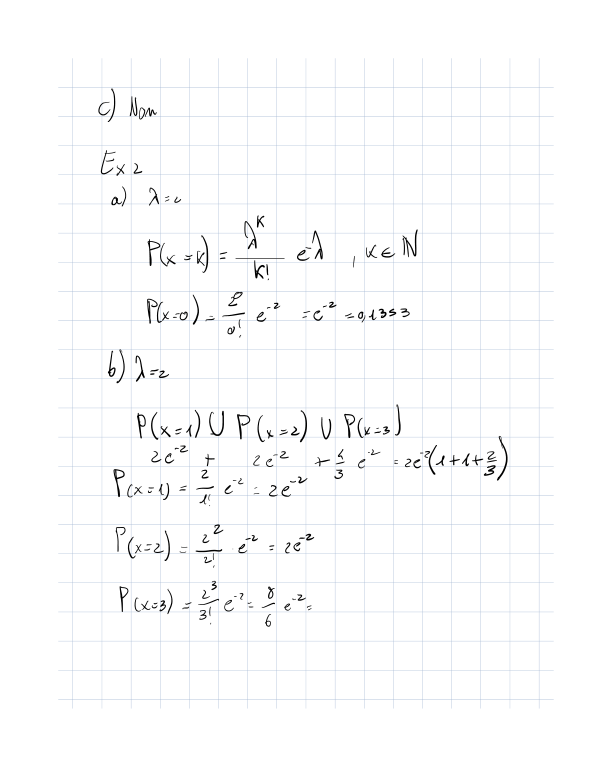 c) Non
Ex 2
a) λ=
P(x=k) = λ^k / k! e^-λ , k ∈ ℕ
P(x=0) = 2^0 / 0! e^-2 = e^-2 = 0,1353
b) λ=2
P(x=1) ∪ P(x=2) ∪ P(x=3)
2e^-2 + 2e^-2 + 4/3 e^-2 = 2e^-2(1+1+2/3)
P(x=1) = 2/1! e^-2 = 2e^-2
P(x=2) = 2^2/2! e^-2 = 2e^-2
P(x=3) = 2^3/3! e^-2 = 8/6 e^-2 =